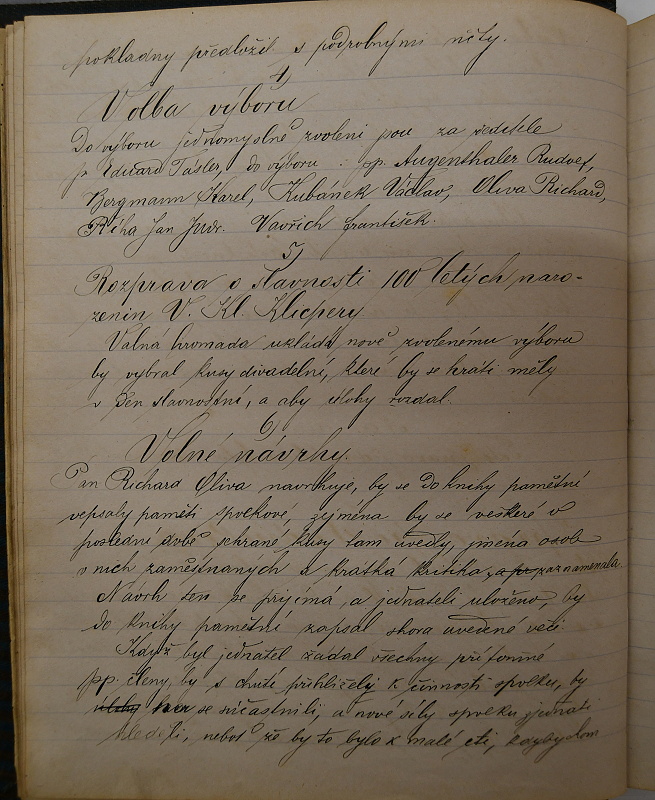 pokladny předložil s podrobnými účty.
4)
Volba výboru
Do výboru jednomyslně zvoleni jsou za ředitele
p. Eduard Tásler, do výboru : pp. Augenthaler Rudolf,
Bergmann Karel, Kubánek Václav, Oliva Richárd,
Říha Jan Judr. Vavřich František.
5)
Rozprava o slavnosti 100 letých naro-
zenin V. Kl. Klicpery
Valná hromada ukládá nově zvolenému výboru
by vybral kusy divadelní, které by se hráti měly
v den slavnostní, a aby úlohy rozdal.
6)
Volné návrhy.
Pan Richard Oliva navrhuje, by se do knihy pamětní
vepsaly paměti spolkové, zejména by se veškeré v
poslední době sehrané kusy tam uvedly, jména osob
v nich zaměstnaných a krátká kritika, zaznamenala.
Návrh ten se přijímá, a jednateli uloženo, by
do knihy pamětní zapsal shora uvedené věci.
Když byl jednatel žádal všechny přítomné
pp. členy, by s chutí přihlíželi k činnosti spolku, by
se súčastnili, a nové síly spolku jednati
hleděli, neboť že by to bylo k malé cti, kdybychom